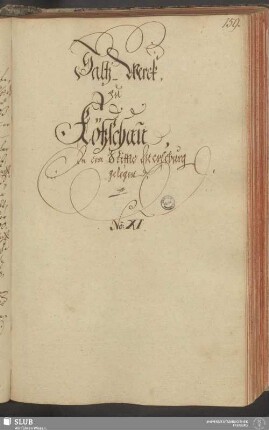 159.
Saltz-Werck.
zu
Kötzschau
In dem Stiffte Merseburg
gelegen.
No: XI.
SLUB